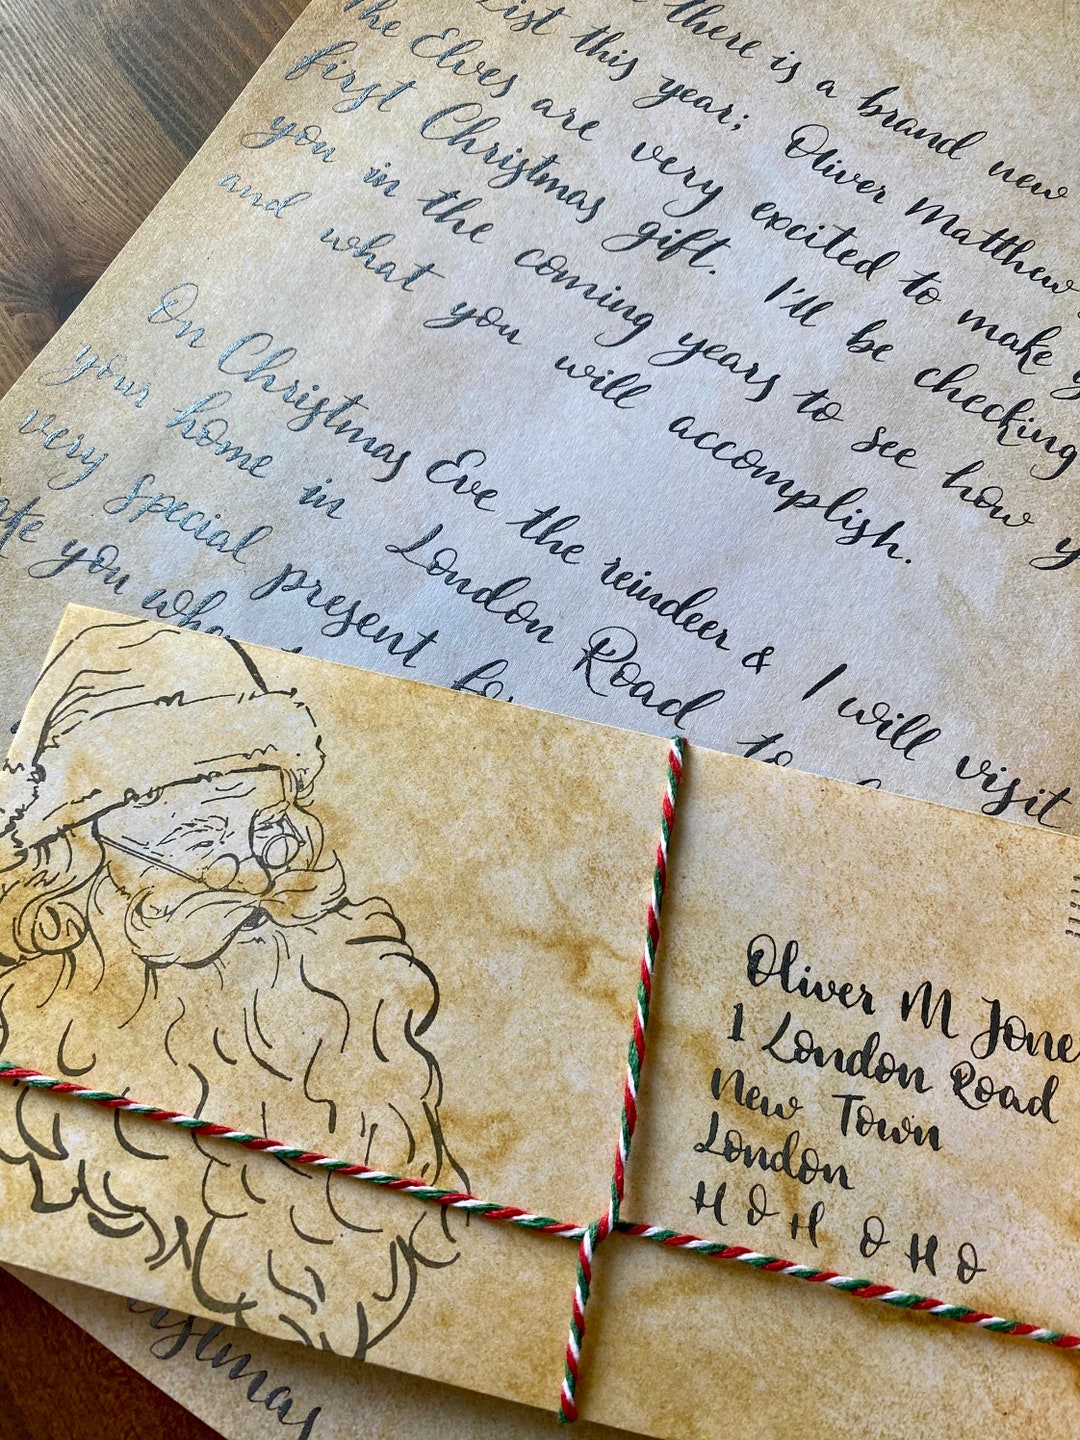 there is a brand new
List this year; Oliver Matthew
The Elves are very excited to make
first Christmas gift. I'll be checking
you in the coming years to see how
and what you will accomplish.
On Christmas Eve the reindeer & I will visit
your home in London Road to
very special present
you
Oliver M Jone
1 London Road
New Town
London
HOH OHO